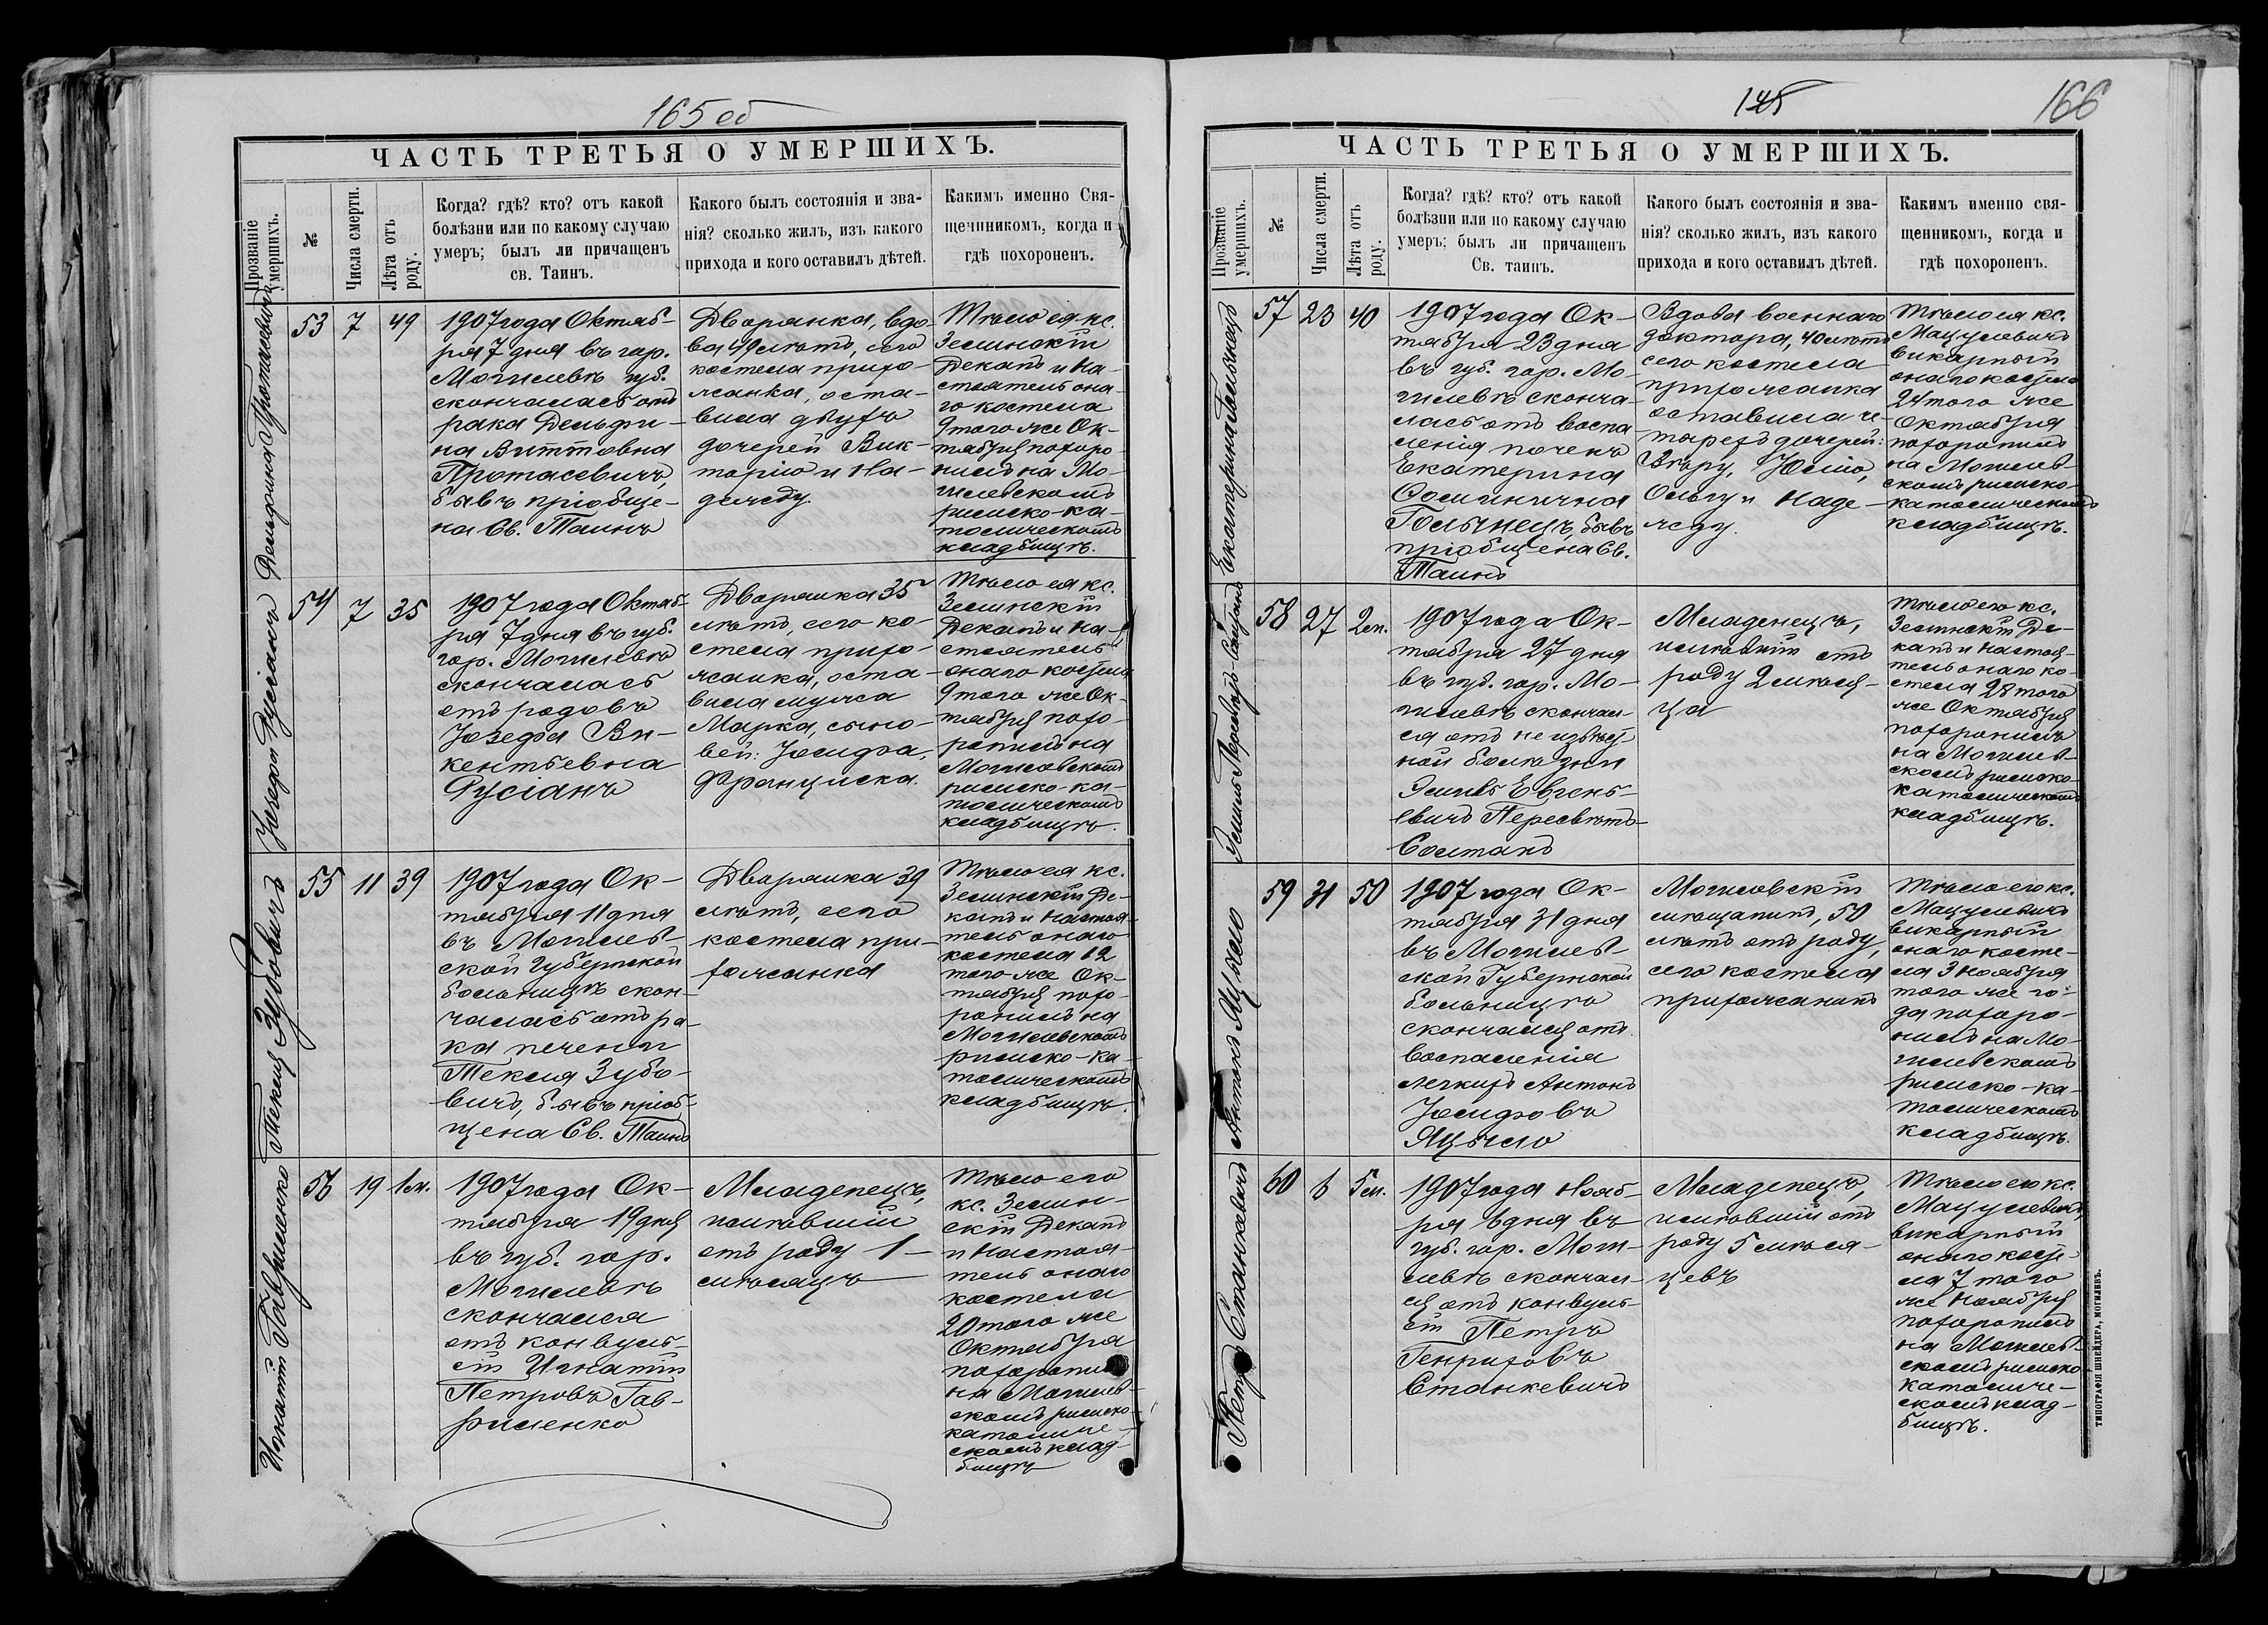 165 об
ЧАСТЬ ТРЕТЬЯ О УМЕРШИХЪ.
Прозваніе
умершихъ.
№
Числа смерти.
Лѣта отъ
роду.
Когда? гдѣ? кто? отъ какой
болѣзни или по какому случаю
умеръ; былъ ли причащенъ
св. Таинъ.
Какого былъ состоянія и зва-
нія? сколько жилъ, изъ какого
прихода и кого оставилъ дѣтей.
Какимъ именно Свя-
щенникомъ, когда и
гдѣ похороненъ.
Дельфина Протасевичъ
53
7
49
1907 года Октяб-
ря 7 дня въ гор.
Могилевѣ губ.
скончалась отъ
рака Дельфи-
на Виттовна
Протасевичъ,
бывъ пріобще-
на Св. Таинъ
Дворянка, вдо-
ва 49 лѣтъ, сего
костела прихо-
жанка, оста-
вила двухъ
дочерей Вик-
торію и На-
дежду.
Тѣло ея кс.
Зелинскій
Деканъ и На-
стоятель она-
го костела
9 того же Ок-
тября похоро-
нилъ на Мо-
гилевскомъ
римско-ка-
толическомъ
кладбищѣ.
Юзефа Русіанъ
54
7
35
1907 года Октяб-
ря 7 дня въ губ.
гор. Могилевѣ
скончалась
отъ родовъ
Юзефа Ви-
кентьевна
Русіанъ
Дворянка 35
лѣтъ, сего ко-
стела прихо-
жанка, оста-
вила мужа
Марка, сыно-
вей: Іосифа,
Франциска.
Тѣло ея кс.
Зелинскій
Деканъ и На-
стоятель
онаго костела
9 того же Ок-
тября похо-
ронилъ на
Могилевскомъ
римско-ка-
толическомъ
кладбищѣ.
Текля Зубовичъ
55
11
39
1907 года Ок-
тября 11 дня
въ Могилев-
ской Губернской
больницѣ скон-
чалась отъ ра-
ка печени
Текля Зубо-
вичъ, бывъ пріоб-
щена Св. Таинъ
Дворянка 39
лѣтъ, сего
костела при-
хожанка
Тѣло ея кс.
Зелинскій Де-
канъ и Настоя-
тель онаго
костела 12
того же Ок-
тября похо-
ронилъ на
Могилевскомъ
римско-ка-
толическомъ
кладбищѣ.
Игнатій Гавриленко
56
19
1 м.
1907 года Ок-
тября 19 дня
въ губ. гор.
Могилевѣ
скончался
отъ конвуль-
сій Игнатій
Петровъ Гав-
риленко
Младенецъ,
имѣвшій
отъ роду 1
мѣсяцъ
Тѣло его
кс. Зелин-
скій Деканъ
и Настоя-
тель онаго
костела
20 того же
Октября
похоронилъ
на Могилев-
скомъ римско-
католиче-
скомъ клад-
бищѣ
166
ЧАСТЬ ТРЕТЬЯ О УМЕРШИХЪ.
Прозваніе
умершихъ.
№
Числа смерти.
Лѣта отъ
роду.
Когда? гдѣ? кто? отъ какой
болѣзни или по какому случаю
умеръ; былъ ли причащенъ
Св. таинъ.
Какого былъ состоянія и зва-
нія? сколько жилъ, изъ какого
прихода и кого оставилъ дѣтей.
Какимъ именно свя-
щенникомъ, когда и
гдѣ похороненъ.
Екатерина Голынецъ
57
23
40
1907 года Ок-
тября 23 дня
въ губ. гор. Мо-
гилевѣ сконча-
лась отъ воспа-
ленія почекъ
Екатерина
Фоминична
Голынецъ, бывъ
пріобщена Св.
Таинъ
Вдова военнаго
доктора, 40 лѣтъ
сего костела
прихожанка
оставила че-
тырехъ дочерей:
Вѣру, Юлію,
Ольгу и Наде-
жду.
Тѣло ея кс.
Мацулевичъ
викарный
онаго костела
24 того же
Октября
похоронилъ
на Могилев-
скомъ римско-
католическомъ
кладбищѣ.
Эмиль Пересвѣтъ-Солтанъ
58
27
2 м.
1907 года Ок-
тября 27 дня
въ губ. гор. Мо-
гилевѣ скончал-
ся отъ неизвѣст-
ной болѣзни
Эмиль Евгень-
евичъ Пересвѣтъ-
Солтанъ
Младенецъ,
имѣвшій отъ
роду 2 мѣся-
ца
Тѣло его кс.
Зелинскій Де-
канъ и Настоя-
тель онаго ко-
стела 28 того
же Октября
похоронилъ
на Могилев-
скомъ римско-
католическомъ
кладбищѣ.
Антонъ Яцыло
59
31
50
1907 года Ок-
тября 31 дня
въ Могилев-
ской Губернской
больницѣ
скончался отъ
воспаленія
легкихъ Антонъ
Іосифовъ
Яцыло
Могилевскій
мѣщанинъ, 50
лѣтъ отъ роду,
сего костела
прихожанинъ
Тѣло его кс.
Мацулевичъ
викарный
онаго косте-
ла 3 Ноября
того же го-
да похоро-
нилъ на Мо-
гилевскомъ
римско-ка-
толическомъ
кладбищѣ.
Петръ Станкевичъ
60
6
5 м.
1907 года Нояб-
ря 6 дня въ
губ. гор. Моги-
левѣ скончал-
ся отъ конвуль-
сій Петръ
Генриховъ
Станкевичъ
Младенецъ,
имѣвшій отъ
роду 5 мѣся-
цевъ
Тѣло его кс.
Мацулевичъ,
викарный
онаго косте-
ла 7 того
же Ноября
похоронилъ
на Могилев-
скомъ римско-
католиче-
скомъ клад-
бищѣ.
ТИПОГРАФІЯ ШНЕЙДЕРА, МОГИЛЕВЪ.